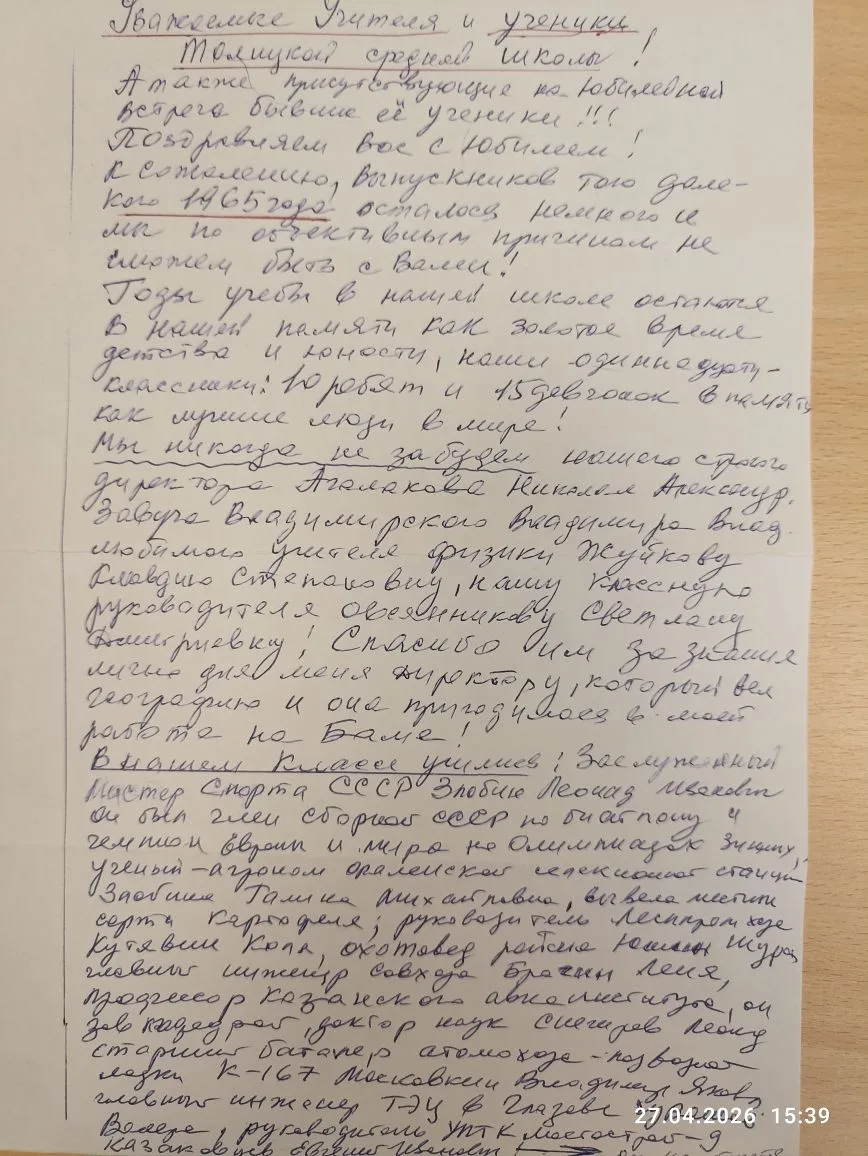 Уважаемые Учителя и ученики
средней школы!
А также присутствующие на Юбилейной
встрече бывшие её ученики!!!
Поздравляем вас с Юбилеем!
К сожалению, выпускников того дале-
кого 1965 года осталось немного и
мы по объективным причинам не
сможем быть с Вами!
Годы учебы в нашей школе остаются
в нашей памяти как золотое время
детства и юности, наши одиннадцати-
классники: 10 ребят и 15 девчонок в памяти
как лучшие люди в мире!
Мы никогда не забудем нашего строгого
директора Агалакова Николая Александр.
Завуча Владимирского Владимира Влад.
любимого учителя физики Жуйкову
Клавдию Степановну, нашу классную
руководителя Овсянникову Светлану
Дмитриевну! Спасибо им за знания
лично для меня директору, который вел
географию и она пригодилась в моей
работе на Баме!
В нашем классе учились: Заслуженный
Мастер Спорта СССР Злобин Леонид Иванович
он был член сборной СССР по биатлону и
чемпион Европы и мира на Олимпиадах Зимних,
ученый-агроном Фаленской селекционной станции
Злобина Галина Михайловна, вывела
сорта картофеля; руководитель Леспромхоза
Кутявин Коля, охотовед района
главный инженер совхоза Леня,
профессор Казанского авиаинститута, он
зав кафедрой, доктор наук Снегирев Леонид
старший баталер атомохода-подводной
лодки К-167 Московкин Владимир Яков.
главный инженер ТЭЦ в Глазове
Валера, руководитель УПТК Мостострой-9
Евгений Иванович
27.04.2026 15:39